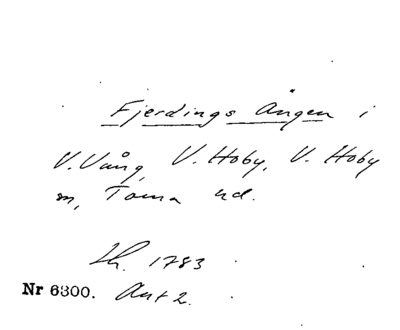 Fjerdings Ängen i
V. Vång, V. Hoby, V. Hoby
sn, Torna hd.
Lh. 1783
Nr 6300. Akt 2.